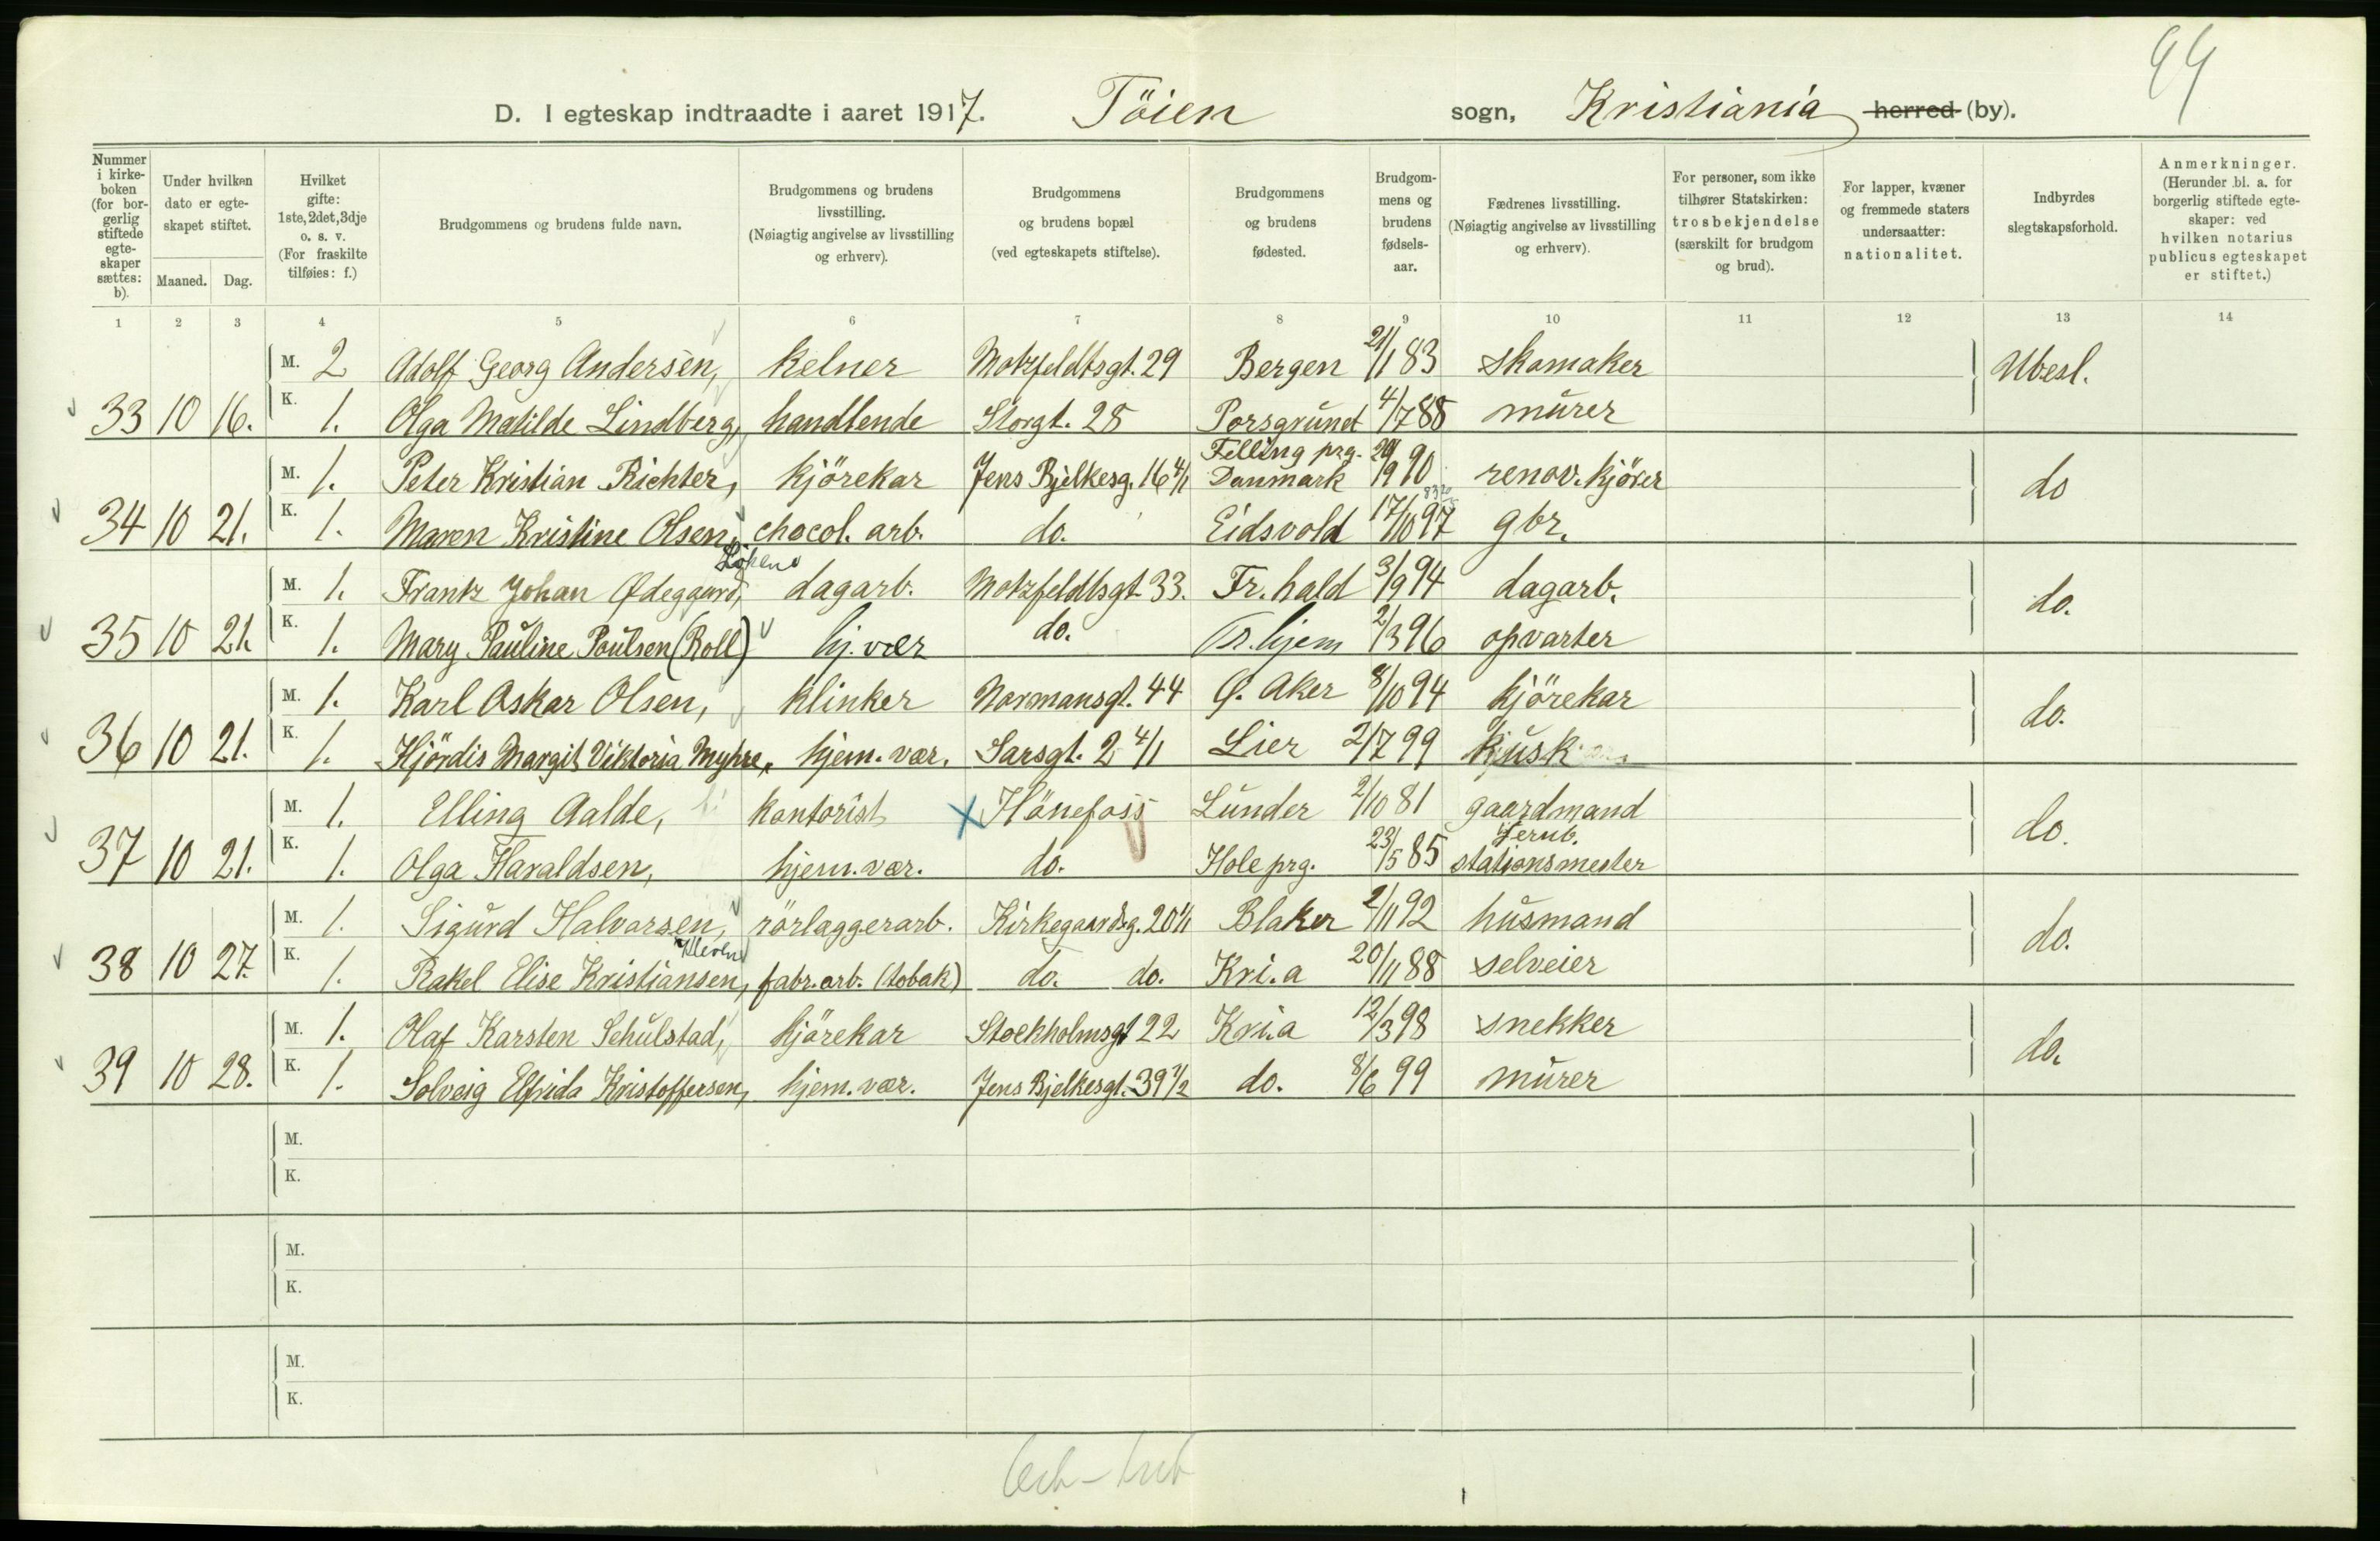 99
D. I egteskap indtraadte i aaret 1917. Töien sogn, Kristiania herred (by).
Nummer i kirke-boken (for bor-gerlig stiftede egte-skaper sættes: b).
Under hvilken dato er egte-skapet stiftet.
Maaned. Dag.
Hvilket gifte: 1ste, 2det, 3dje o. s. v. (For fraskilte tilføies: f.)
Brudgommens og brudens fulde navn.
Brudgommens og brudens livsstilling. (Nøiagtig angivelse av livsstilling og erhverv).
Brudgommens og brudens bopæl (ved egteskapets stiftelse).
Brudgommens og brudens fødested.
Brudgom-mens og brudens fødsels-aar.
Fædrenes livsstilling. (Nøiagtig angivelse av livsstilling og erhverv).
For personer, som ikke tilhører Statskirken: trosbekjendelse (særskilt for brudgom og brud).
For lapper, kvæner og fremmede staters undersaatter: nationalitet.
Indbyrdes slegtskapsforhold.
Anmerkninger. (Herunder bl. a. for borgerlig stiftede egte-skaper: ved hvilken notarius publicus egteskapet er stiftet.)
1 2 3 4 5 6 7 8 9 10 11 12 13 14
M. 2 Adolf Georg Andersen, kelner Motzfeldtsgt. 29 Bergen 21/1 83 skomaker Ubesl.
33 10 16. K. 1. Olga Matilde Lindberg, handlende Storgt. 28 Porsgrund 4/7 88 murer
M. 1. Peter Kristian Richter, kjörekar Jens Bjelkesg. 16 4/1 Felling prg. Danmark 29/9 90 renov. kjörer do
34 10 21. K. 1. Maren Kristine Olsen, chocol. arb. do. Eidsvold 17/10 97 gbr.
Löken
M. 1. Frantz Johan Ødegaard, dagarb. Motzfeldtsgt. 33. Fr. hald 3/9 94 dagarb. do.
35 10 21. K. 1. Mary Pauline Poulsen (Roll) hj. vær do. Tr. hjem 2/3 96 opvarter
M. 1. Karl Oskar Olsen, klinker Normansgt. 44 Ø. Aker 8/10 94 kjörekar do.
36 10 21. K. 1. Hjördis Margit Viktoria Myhre, hjem. vær. Sarsgt. 2 4/1 Lier 2/7 99 kusk
M. 1. Elling Aalde, kontorist x Hönefoss Lunder 2/10 81 gaardmand do.
37 10 21. K. 1. Olga Haraldsen, hjem. vær. do. Hole prg. 23/5 85 Jernb. stationsmester
M. 1. Sigurd Halvorsen, rörlaggerarb. Kirkegaardsg. 20 1/1 Blaker 2/11 92 husmand do.
38 10 27. K. 1. Rakel Elise Kristiansen, fabr. arb. (tobak) do. do. Kri.a 20/11 88 selveier
M. 1. Olaf Karsten Schulstad, kjörekar Stockholmsgt 22 Kri.a 12/3 98 snekker do.
39 10 28. K. 1. Solveig Elfrida Kristoffersen, hjem. vær. Jens Bjelkesgt. 39 1/2 do. 8/6 99 murer
M.
K.
M.
K.
M.
K.